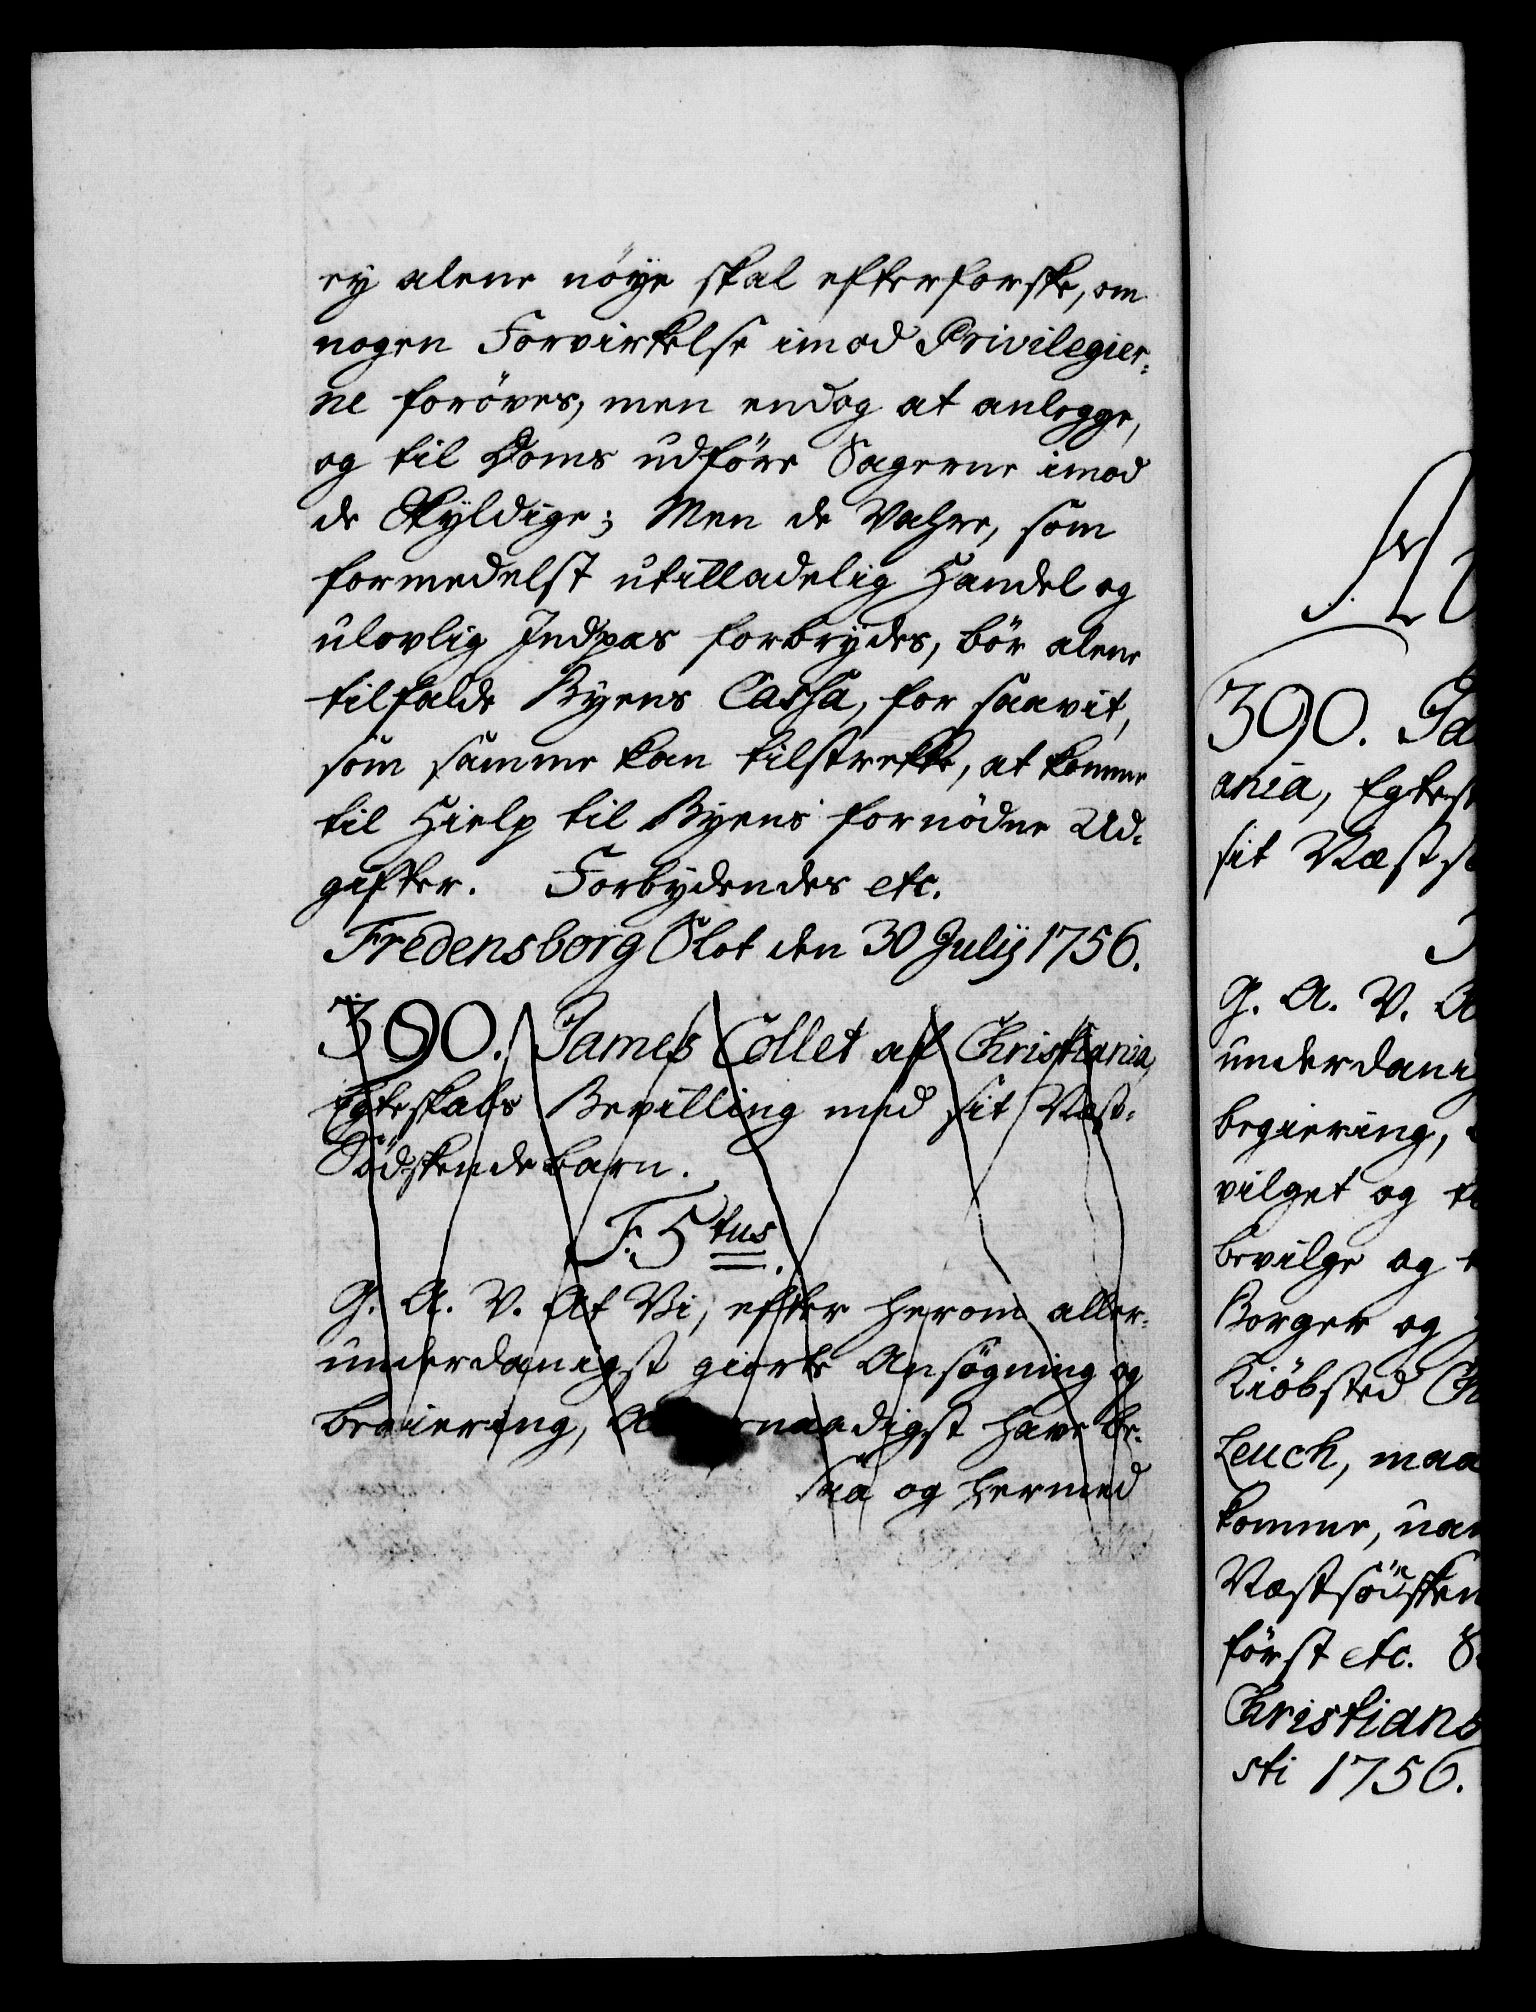 ey alene nöye skal efterforske, om
nogen Forvirkelse imod Privilegier-
ne foröves, men endog at anlegge,
og til Doms udföre Sagerne imod
de Skyldige; Men de Vahre, som
formedelst utilladelig Handel og
ulovlig Indpas forbrydes, bör alene
tilfalde Byens Cassa, for saavit,
som samme kan tilstrekke, at komme
til Hielp til Byens fornödne Ud-
gifter. Forbydendes etc.
Fredensborg Slot den 30 Julij 1756.
390. James Collet af Christiania,
Egteskabs Bevilling med sit Næst-
Södskendebarn.
F. 5tus.
G. A. V. At Vi, efter herom aller-
underdanigst giorte Ansögning og
begiering, naadigst have be-
saa og hermed
390. Ja
ania, Egtes
sit Næsts
G. A. V. A
underdanig
begiering,
vilget og t
bevilge og
Borger og
Kiöbsted Ch
Leuch, maa
komme, uan
Næstsödsken
först etc.
Christians
sti 1756.